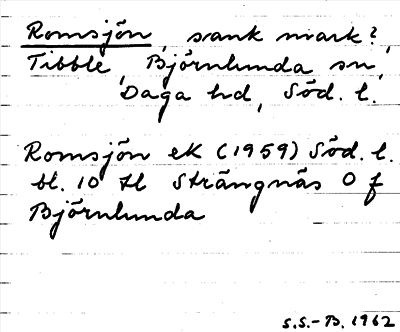 Romsjön, sank mark?,
Tibble, Björnlunda sn,
Daga hd, Söd. l.
Romsjön ek (1959) Söd. l.
bl. 10 Hl Strängnäs O f
Björnlunda
S.S.-B. 1962